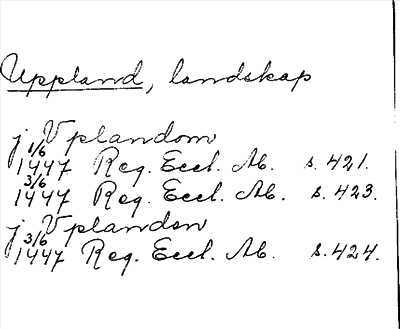 Uppland, landskap
j Vplandom
1/6
1447 Reg. Eccl. Ab. s. 421.
3/6
1447 Reg. Eccl. Ab. s. 423.
j Vplandon
3/6
1447 Reg. Eccl. Ab. s. 424.